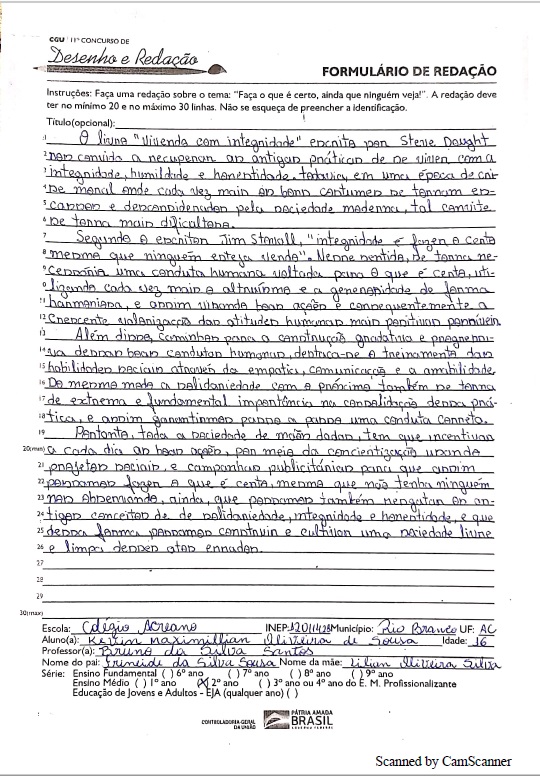 CGU 11º CONCURSO DE
Desenho e Redação
FORMULÁRIO DE REDAÇÃO
Instruções: Faça uma redação sobre o tema: "Faça o que é certo, ainda que ninguém veja!". A redação deve
ter no mínimo 20 e no máximo 30 linhas. Não se esqueça de preencher a identificação.
Título(opcional):
1 O livro "Vivendo com integridade" escrito por Steve
2 nos convida a recuperar as antigas práticas de se viver com a
3 integridade, humildade e honestidade, todavia, em uma época de cri-
4 se moral onde cada vez mais os bons costumes se tornam es-
5 cassos e desconsiderados pela sociedade moderna, tal convite
6 se torna mais dificultoso.
7 Segundo o escritor Jim Stovall, "integridade é fazer a certo
8 mesmo que ninguém esteja vendo". Nesse sentido, se torna ne-
9 cessária uma conduta humana voltada para o que é certo, uti-
lizando cada vez mais o altruísmo e a generosidade de forma
11 harmoniosa, e assim visando boas ações e consequentemente a
12 crescente valorização das atitudes humanas mais positivas possíveis
13 Além disso, caminhar para a construção gradativa e progressi-
14 va dessas boas condutas humanas, destaca-se o treinamento das
15 habilidades sociais através da empatia, comunicação e a amabilidade.
16 Do mesmo modo a solidariedade com o próximo também se torna
17 de extrema e fundamental importância na consolidação dessa prá-
18 tica, e assim garantirmos passo a passo uma conduta correta.
19 Portanto, toda a sociedade de mãos dadas, tem que incentivar
20(min) a cada dia as boas ações, por meio da concientização usando
21 projetos sociais, e campanhas publicitárias para que assim
22 possamos fazer o que é certo, mesmo que não tenha ninguém
23 nos observando, ainda, que possamos também resgatar os an-
24 tigos conceitos de de solidariedade, integridade e honestidade, e que
25 dessa forma possamos construir e cultivar uma sociedade livre
26 e limpa desses atos errados.
27
28
29
30(max)
Escola: Colégio Acreano INEP: Município: Rio Branco UF: AC
Aluno(a): Kevin Maximillian Oliveira de Sousa Idade: 16
Professor(a): Bruno da Silva Santos
Nome do pai: da Silva Sousa Nome da mãe: Lilian Oliveira Silva
Série: Ensino Fundamental ( ) 6º ano ( ) 7º ano ( ) 8º ano ( ) 9º ano
Ensino Médio ( ) 1º ano (X) 2º ano ( ) 3º ano ou 4º ano do E. M. Profissionalizante
Educação de Jovens e Adultos - EJA (qualquer ano) ( )
CONTROLADORIA-GERAL
DA UNIÃO
PÁTRIA AMADA
BRASIL
GOVERNO FEDERAL
Scanned by CamScanner